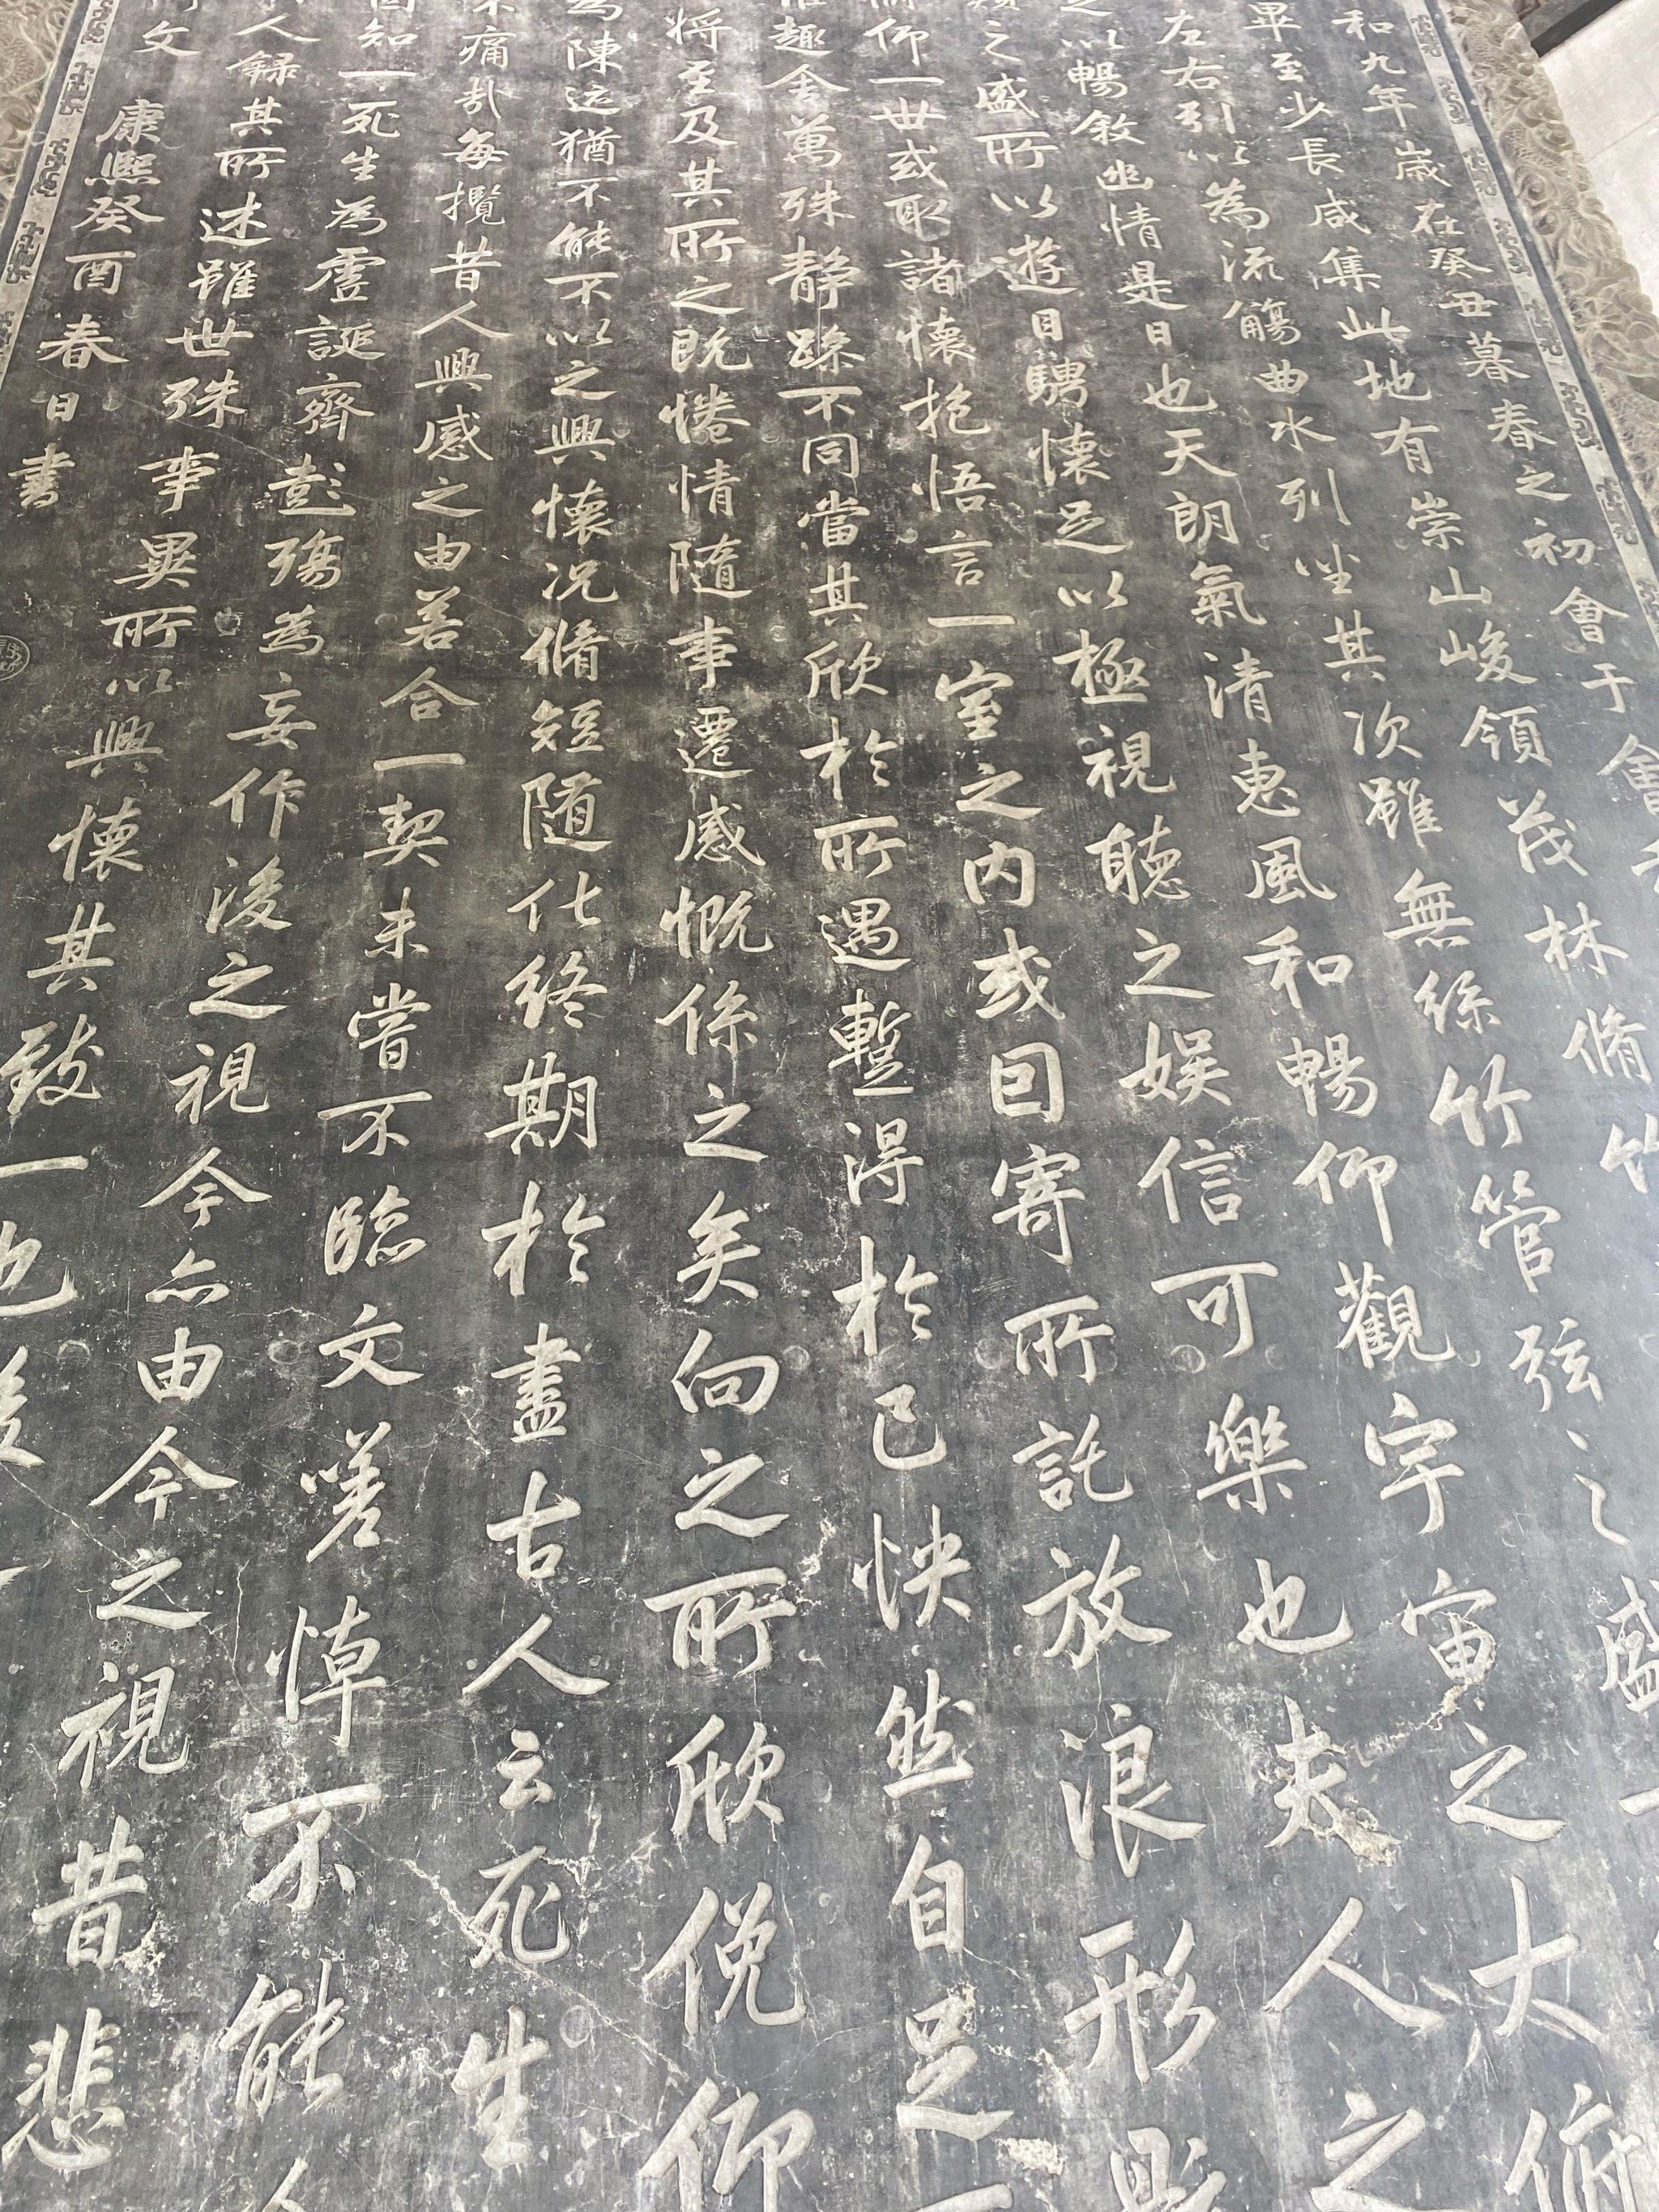 和九年歲在癸丑暮春之初會于會
畢至少長咸集此地有崇山峻領茂林脩竹
左右引以為流觴曲水列坐其次雖無絲竹管弦之盛一
之以暢敘幽情是日也天朗氣清惠風和暢仰觀宇宙之大俯
之盛所以遊目騁懷足以極視聽之娛信可樂也夫人之
俯仰一世或取諸懷抱悟言一室之內或因寄所託放浪形
趣舍萬殊靜躁不同當其欣於所遇暫得於己怏然自足
將至及其所之既惓情隨事遷感慨係之矣向之所欣俛仰
為陳迹猶不能不以之興懷況脩短隨化終期於盡古人云死生
不痛哉每攬昔人興感之由若合一契未嘗不臨文嗟悼不能
固知一死生為虛誕齊彭殤為妄作後之視今亦由今之視昔悲
人錄其所述雖世殊事異所以興懷其致一也後
文
康熙癸酉春日書